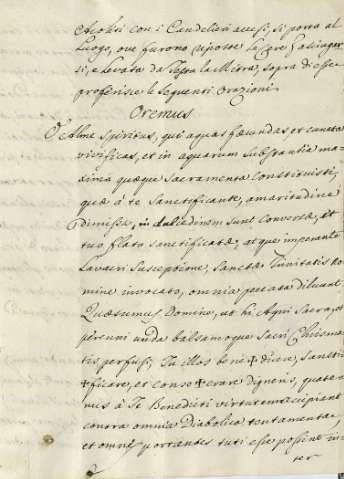 Acoliti con i Candelieri accesi, si porta al
luogo, ove furono riposte le Cere da benedir
si, e levata da sopra la Mitra, sopra di esse
proferisce le seguenti orazioni.
Oremus
O Alme Spiritus, qui aquas fœcundas et cuncta
vivificas, et in aquarum substantia ma-
xima quæque Sacramenta Constituisti,
quæ à te Sanctificante, amaritudine
dimissa, in dulcedinem sunt Conversæ, et
tuo flatu sanctificatæ, atque imperante
Lavacri Susceptione, Sanctæ Trinitatis no
mine invocato, omnia peccata diluant
Quæsumus Domine, ut hi Agni Sacra, et
perenni unda balsamoque sacri Chrisma-
tis perfusi, Tu illos bene✠dicere, sancti
✠ficare, et conse✠crare digneris, quate-
nus à Te Benedicti virtutem accipiant
contra omnia Diabolica tentamenta,
et omnes portantes tuti esse possint in-
ter